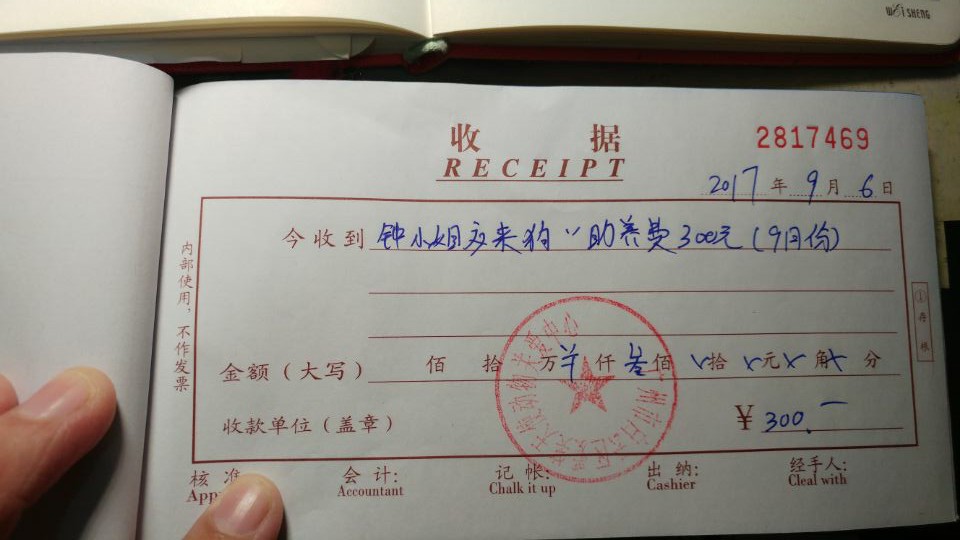 WEISHENG
收据
2817469
RECEIPT
2017年9月6日
今收到 钟小姐 狗 助养费300元(9月份)
内部使用，不作发票
金额（大写） 佰 拾 万 仟 叁佰 拾 元 角 分
收款单位（盖章） ￥300.—
核准 会计: 记帐: 出纳: 经手人:
App Accountant Chalk it up Cashier Cleal with
①存根